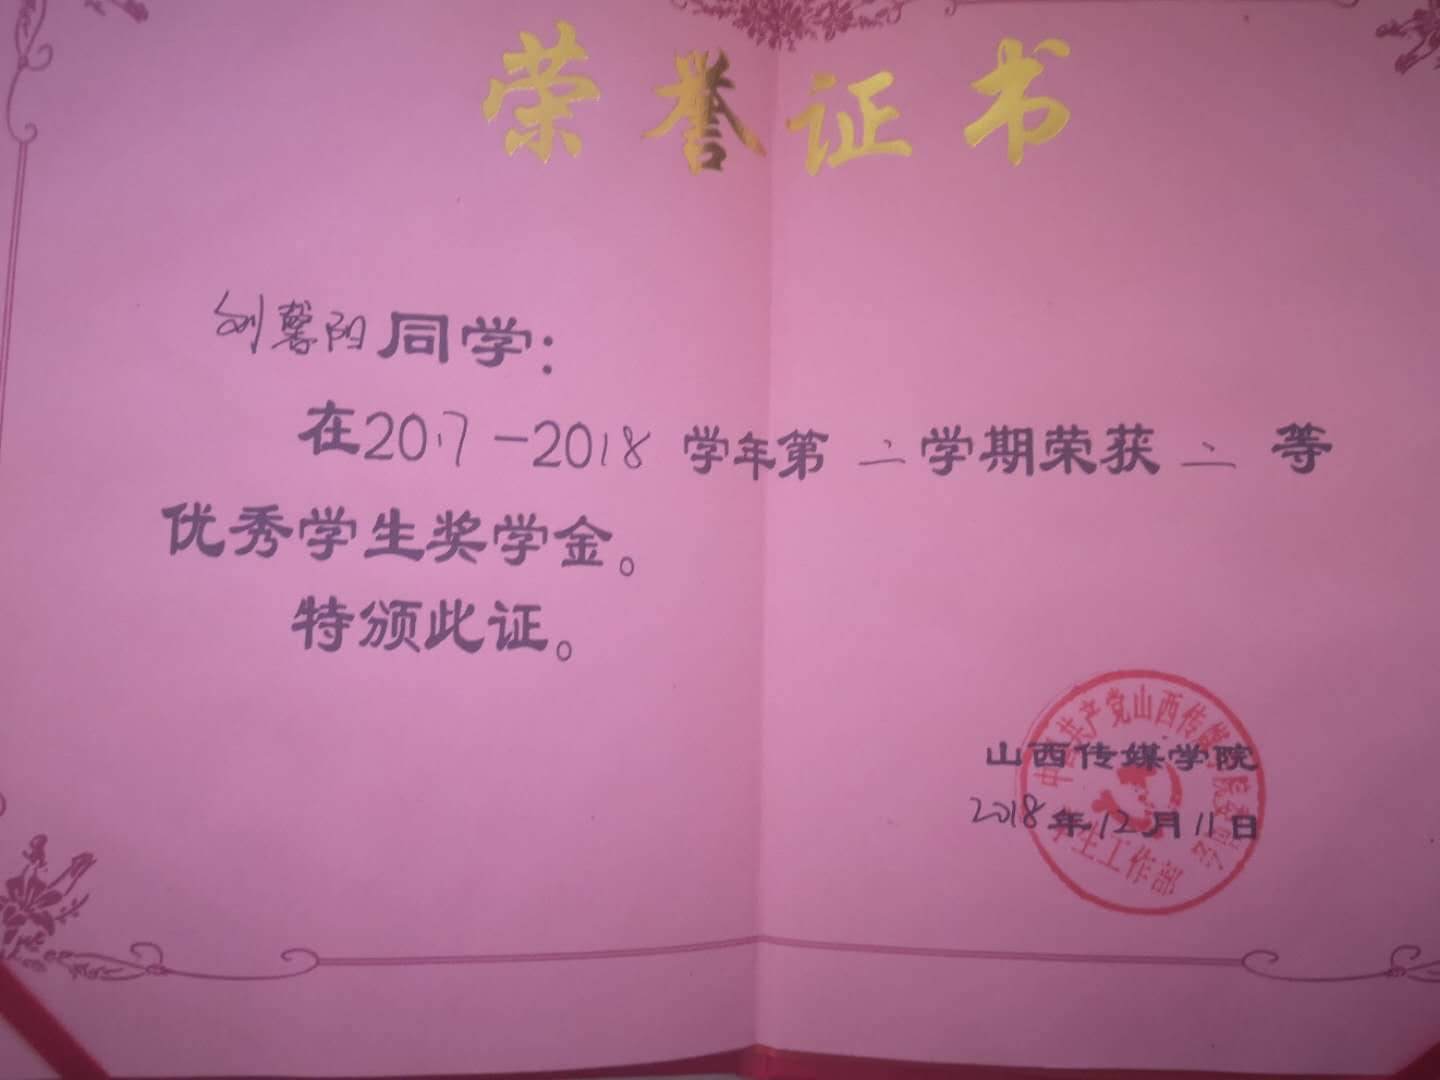 荣誉证书
刘馨阳同学：
在2017-2018学年第二学期荣获二等
优秀学生奖学金。
特颁此证。
山西传媒学院
2018年12月11日
中国共产党山西传媒学院委员会
学生工作部